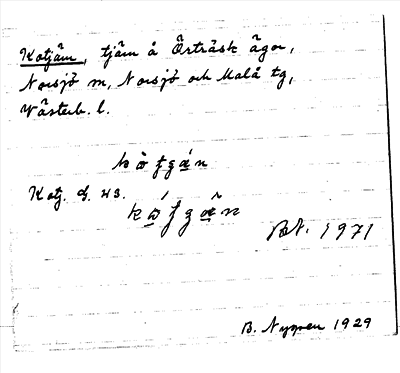 Kotjärn, tjärn å Örträsk ägor,
Norsjö sn, Norsjö och Malå tg,
Västerb. l.
Kotj. G. 43.
1971
B. Nygren 1929